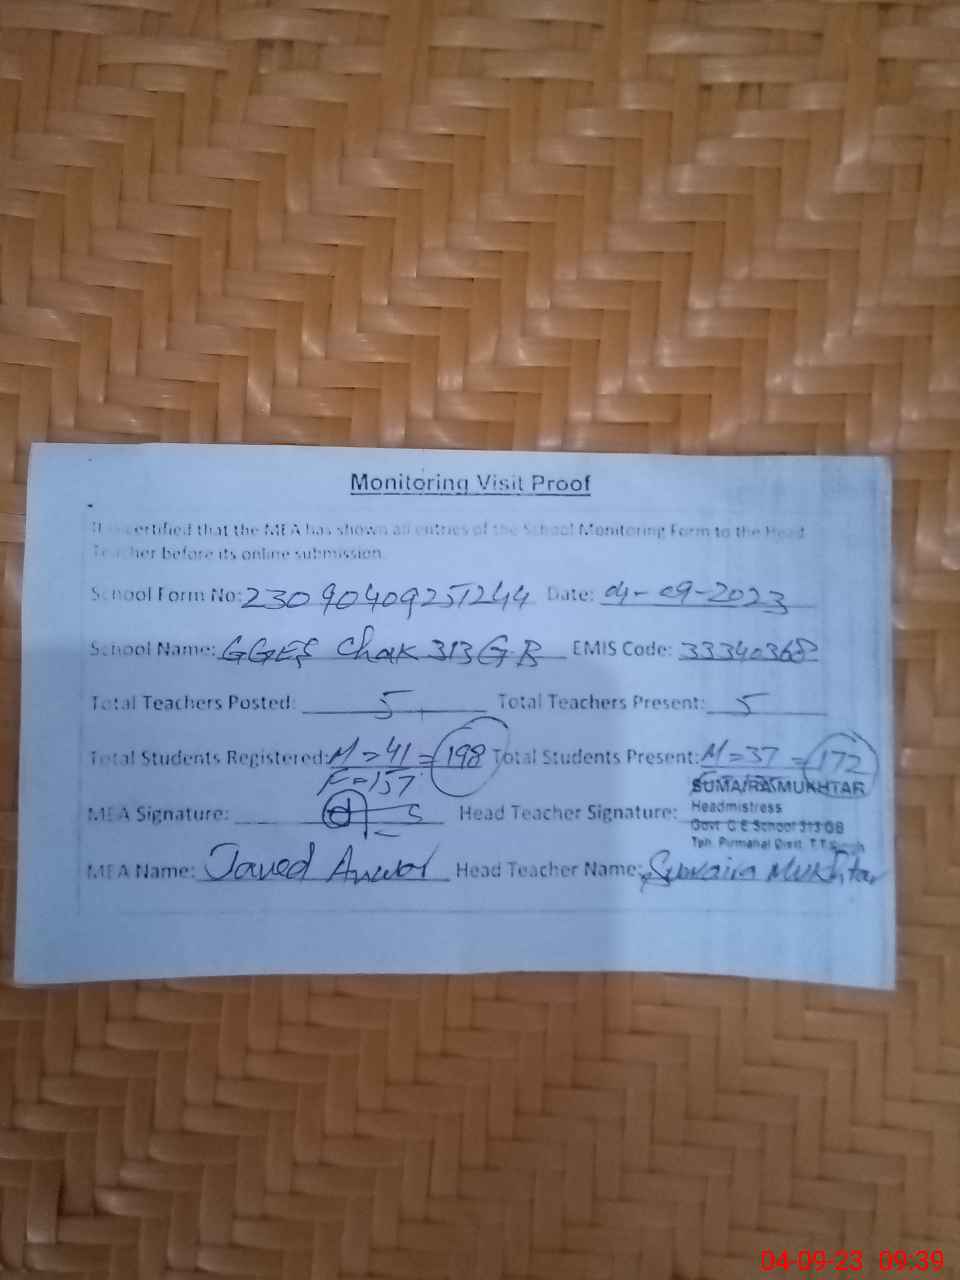 Monitoring Visit Proof
It is certified that the MEA has shown all entries of the School Monitoring Form to the Head
Teacher before its online submission.
School Form No: 23090409251244 Date: 04-09-2023
School Name: GGES Chak 313 GB EMIS Code: 33340368
Total Teachers Posted: 5 Total Teachers Present: 5
Total Students Registered: M = 41 = 198 Total Students Present: M = 37 = 172
F = 157
SUMAIRA MUKHTAR
MEA Signature: Head Teacher Signature:
Headmistress
Govt. G.E School 313 GB
Teh. Pirmahal Distt. T.T.Singh
MEA Name: Javed Anwar Head Teacher Name: Sumaira Mukhtar
04-09-23 09:39